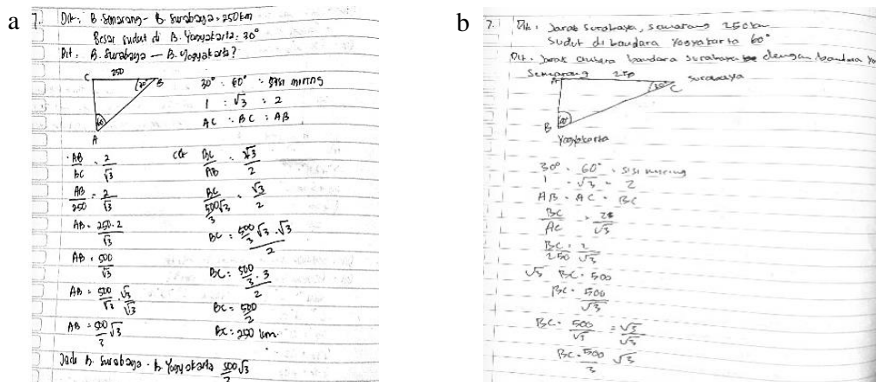 a
7. Dit : B. Semarang - B. Surabaya = 250 km
Besar sudut di B. Yogyakarta : 30°
Dit : B. Surabaya — B. Yogyakarta ?
C 250 B
30°
60
A
30° : 60° : sisi miring
1 : √3 : 2
AC : BC : AB
AB/BC = 2/√3
AB/250 = 2/√3
AB = 250.2/√3
AB = 500/√3
AB = 500/√3 . √3/√3
AB = 500/3 √3
BC/AB = √3/2
BC/(500/3 √3) = √3/2
BC = (500/3 √3 . √3)/2
BC = (500/3 . 3)/2
BC = 500/2
BC = 250 km.
Jadi B. Surabaya - B. Yogyakarta 500√3/3
b
7. Dik : Jarak Surabaya, Semarang 250 km
Sudut di bandara Yogyakarta 60°
Dit : Jarak antara bandara Surabaya dengan bandara Yo
Semarang 250 Surabaya
A 30° C
B 60°
Yogyakarta
30° : 60° : sisi miring
1 : √3 : 2
AB : AC : BC
BC/AC = 2/√3
BC/250 = 2/√3
√3 BC = 500
BC = 500/√3
BC = 500/√3 = √3/√3
BC = 500/3 √3